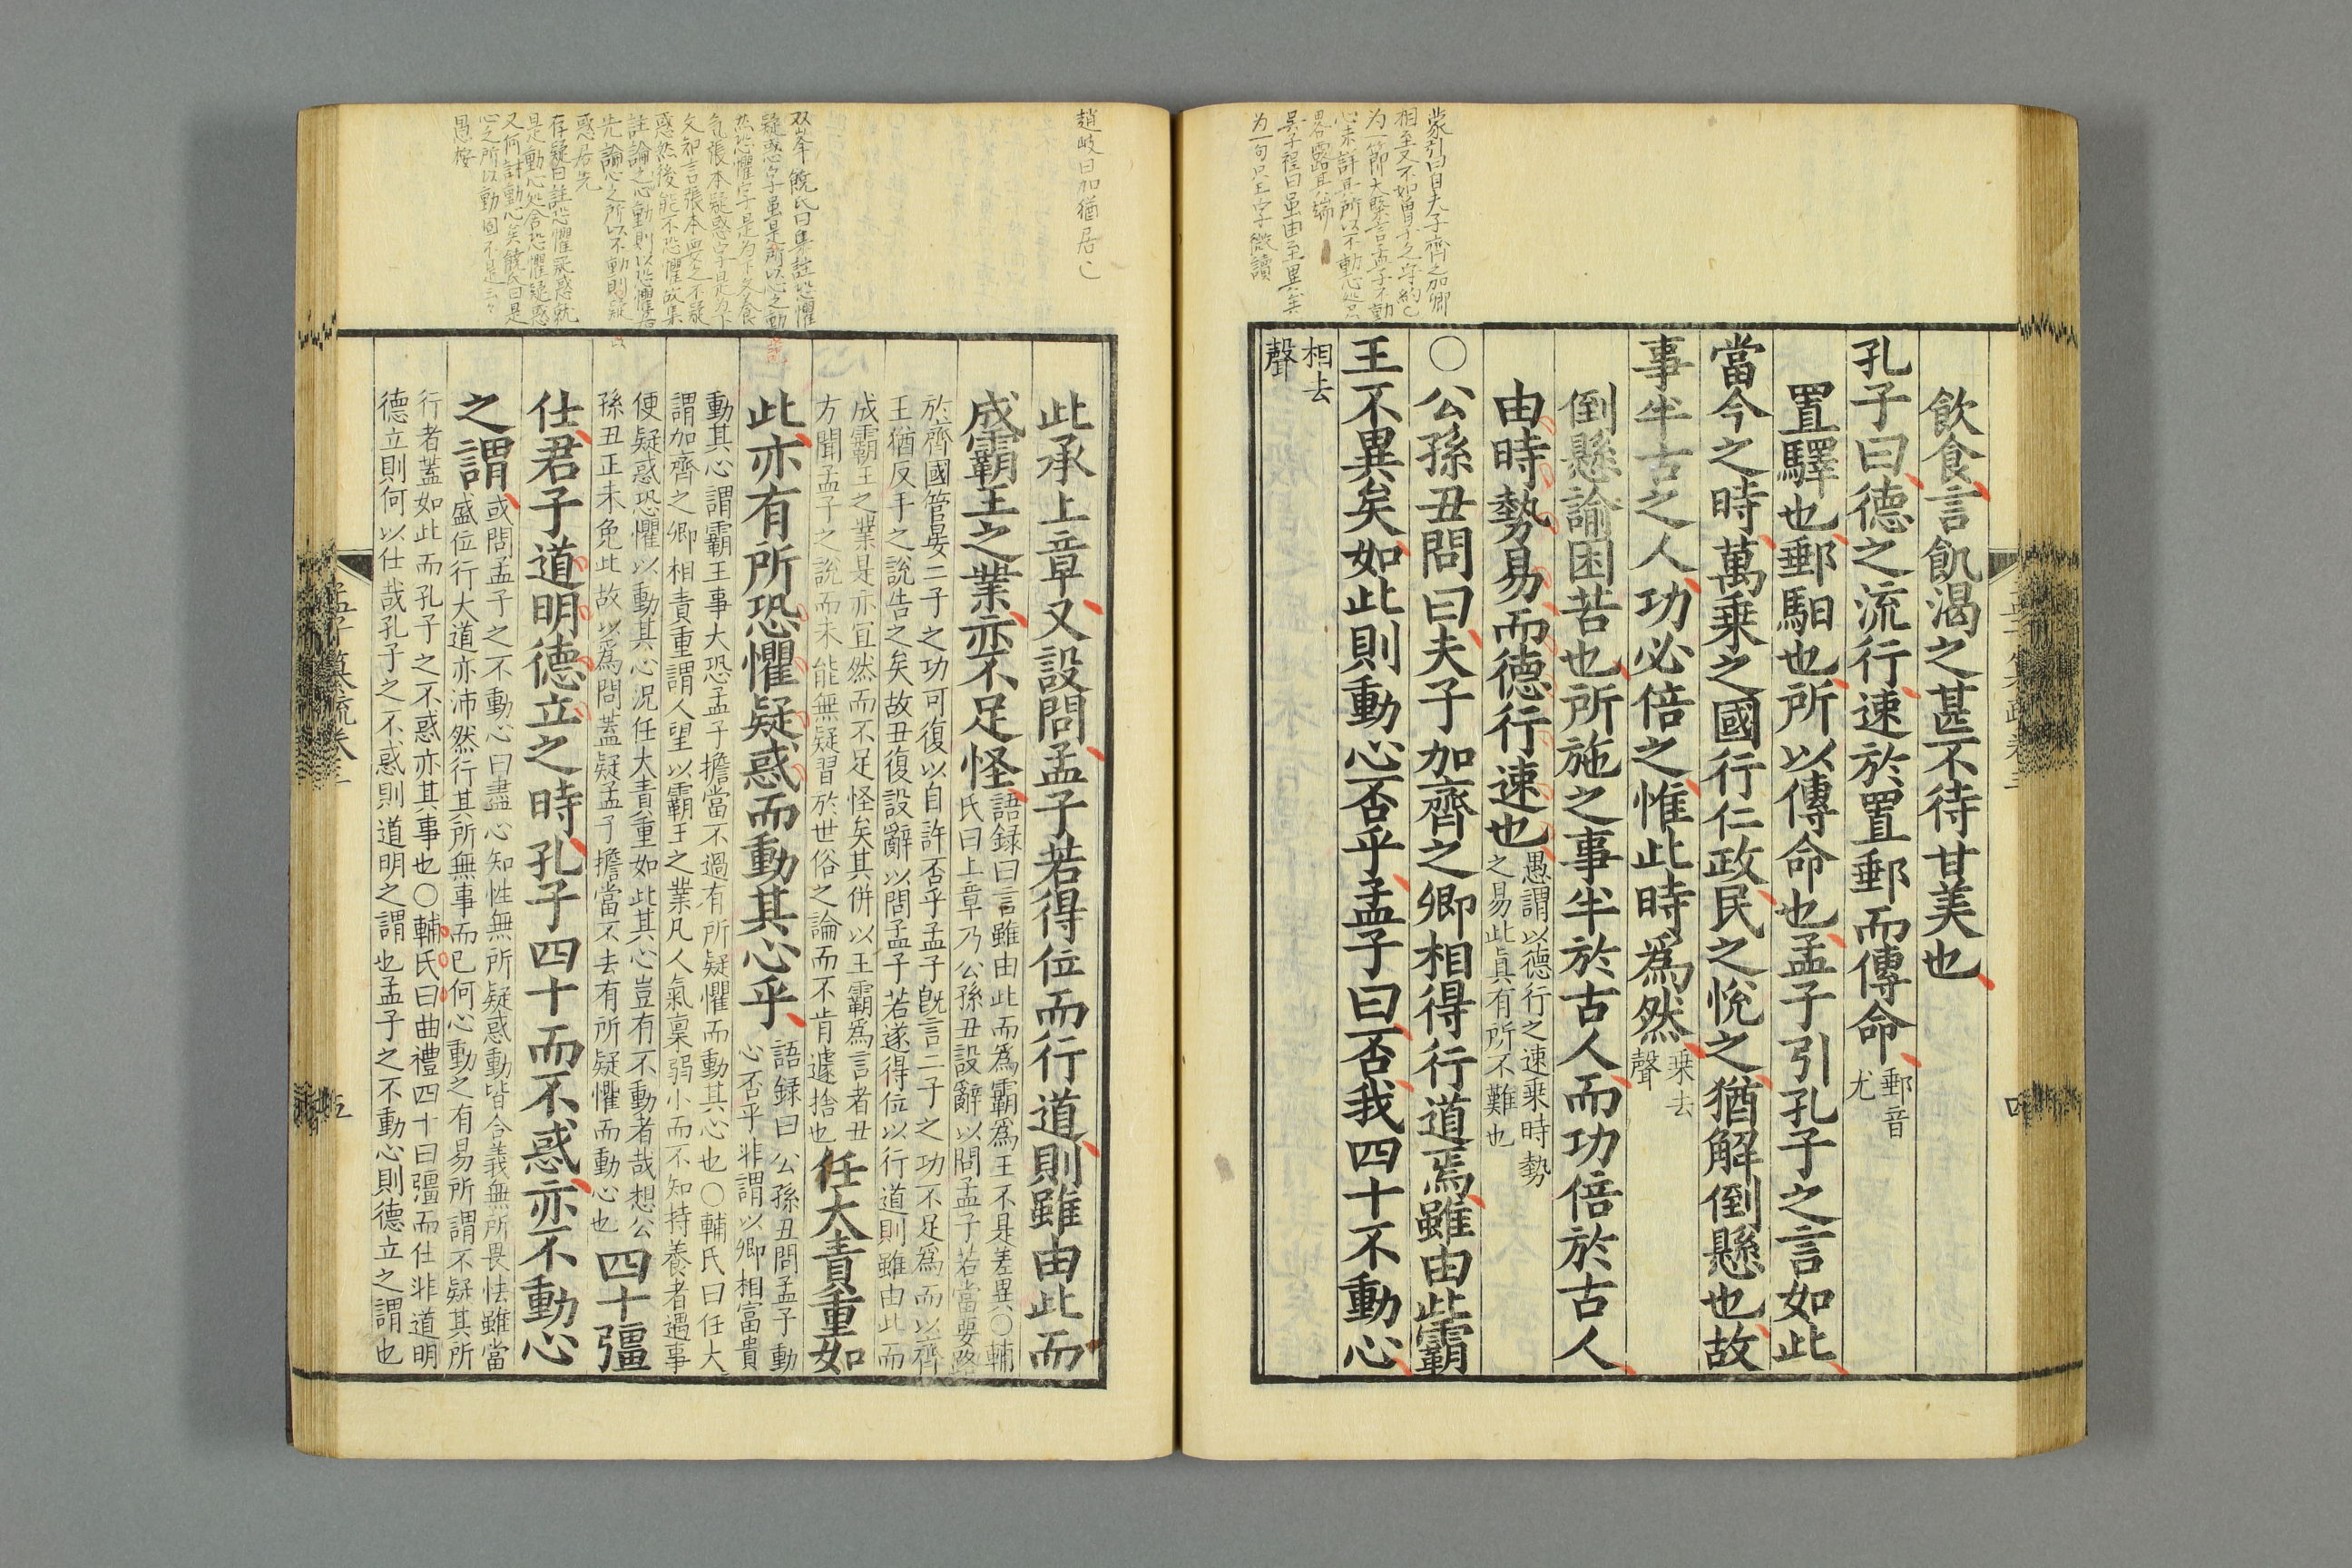 蒙引曰自夫子齊之加卿
相至又不如曾子之守約也
为一節大槩言孟子不動
心未詳其所以不動心処只
畧露其端
吴子程曰虽由至異矣
为一句只王字微讀
飲食言飢渴之甚不待甘美也
孔子曰德之流行速於置郵而傳命郵音
尤
置驛也郵馹也所以傳命也孟子引孔子之言如此
當今之時萬乗之國行仁政民之悅之猶解倒懸也故
事半古之人功必倍之惟此時爲然乗去
聲
倒懸諭困苦也所施之事半於古人而功倍於古人
由時勢易而德行速也愚謂以德行之速乗時勢
之易此眞有所不難也
〇公孫丑問曰夫子加齊之卿相得行道焉雖由此霸
王不異矣如此則動心否乎孟子曰否我四十不動心
相去
聲
趙岐曰加猶居也
双峯饒氏曰集註恐懼
疑惑字虽是所以心之動
然恐懼字是为下文養
氣張本疑惑字是为下
文知言張本要之不疑
惑然後能不恐懼故集
註論心動則以恐懼居
先論心之所以不動則疑
惑居先
存疑曰註恐懼疑惑就
是動心処舍恐懼疑惑
又何討動心矣饒氏曰是
心之所以動固不是
愚按
此承上章又設問孟子若得位而行道則雖由此而
成霸王之業亦不足怪語録曰言雖由此而爲霸爲王不是差異〇輔
氏曰上章乃公孫丑設辭以問孟子若當要路
於齊國管晏二子之功可復以自許否乎孟子旣言二子之功不足爲而以齊
王猶反手之說告之矣故丑復設辭以問孟子若遂得位以行道則雖由此而
成霸王之業是亦冝然而不足怪矣其併以王霸爲言者丑
方聞孟子之說而未能無疑習於世俗之論而不肯遽捨也任大責重如
此亦有所恐懼疑惑而動其心乎語録曰公孫丑問孟子動
心否乎非謂以卿相富貴
動其心謂霸王事大恐孟子擔當不過有所疑懼而動其心也〇輔氏曰任大
謂加齊之卿相責重謂人望以霸王之業凡人氣稟弱小而不知持養者遇事
便疑惑恐懼以動其心況任大責重如此其心豈有不動者哉想公
孫丑正未免此故以爲問蓋疑孟子擔當不去有所疑懼而動心也四十彊
仕君子道明德立之時孔子四十而不惑亦不動心
之謂或問孟子之不動心曰盡心知性無所疑惑動皆合義無所畏怯雖當
盛位行大道亦沛然行其所無事而已何心動之有易所謂不疑其所
行者蓋如此而孔子之不惑亦其事也〇輔氏曰曲禮四十曰彊而仕非道明
德立則何以仕哉孔子之不惑則道明之謂也孟子之不動心則德立之謂也